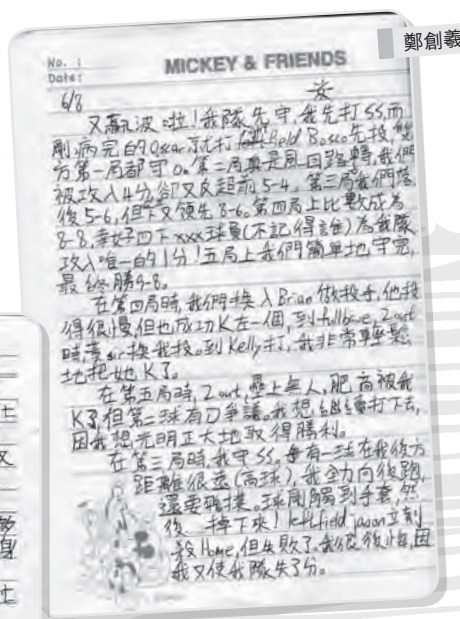 鄭創羲
No. :
Date:
MICKEY & FRIENDS
6/8
又贏波啦!我隊先守,我先打SS,而
剛病完的Oscar就打 field Bosco先投,雙
方第一局都守0。第二局真是風回路轉,我們
被攻入4分,卻又反超前5-4,第三局我們落
後5-6,但下又領先8-6。第四局上比數成為
8-8,幸好四下xxx球員(不記得誰)為我隊
攻入唯一的1分!五局上我們簡單地守完,
最終勝9-8。
在第四局時,我們換入Brian做投手,他投
得很慢但也成功K左一個,到fullbase, 2 out
時黃sir換我投。到Kelly打,我非常輕鬆
地把她K了。
在第五局時,2 out,壘上無人,肥高被我
K了,但第二球有D爭議。我想,繼續打下去,
因我想光明正大地取得勝利。
在第三局時,我守SS。毎有一球在我後方
距離很遠(高球),我全力向後跑,
還要飛撲。球剛觸到手套,然
後...掉下來!leftfield jason立刻
殺Home,但失敗了。我很後悔,因
我又使我隊失了分。
士
又
身
士